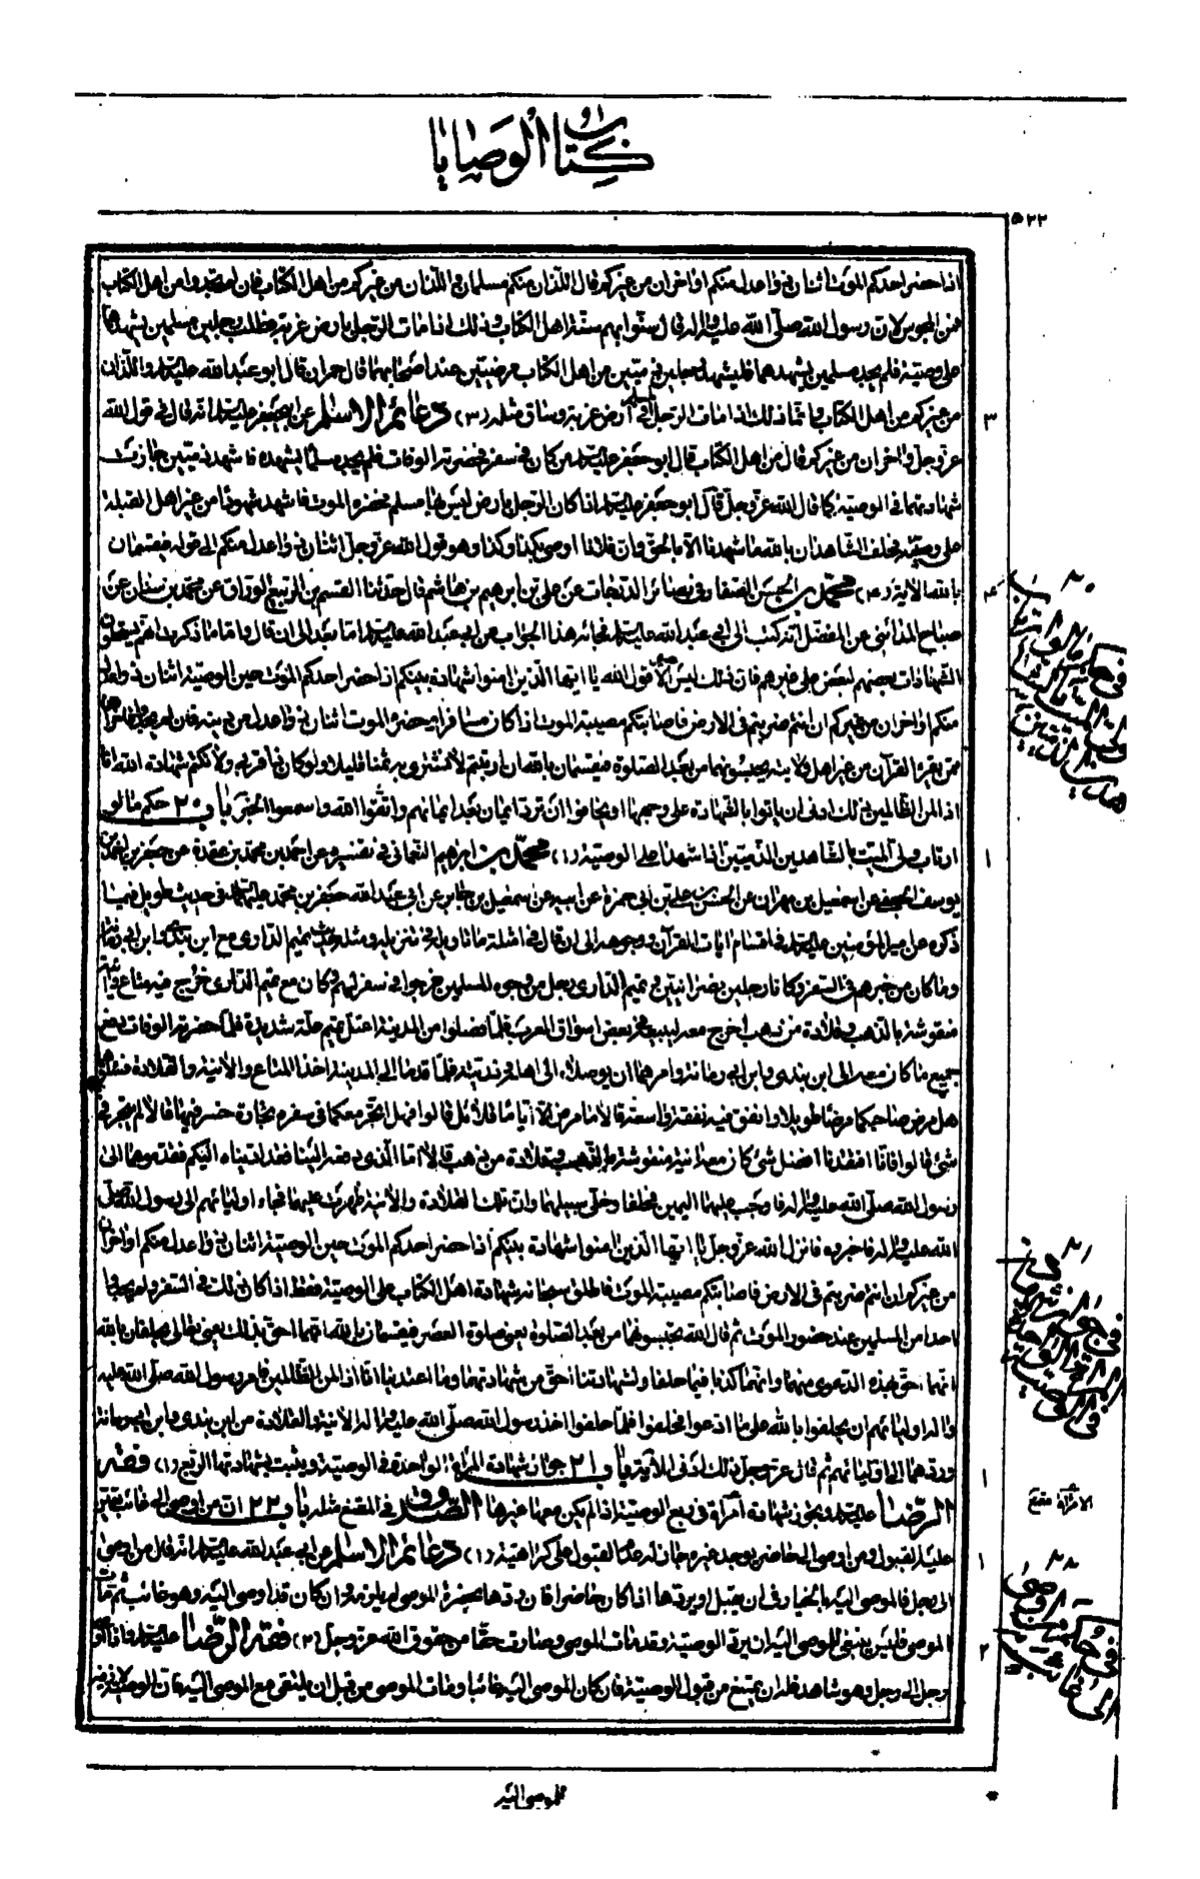 كتاب الوصايا
٥٢٢
اذا حضر احدكم الموت اثنان ذوا عدل منكم او اخران من غيركم قال اللذان منكم مسلمان واللذان من غيركم من اهل الكتاب فان لم تجدوا من اهل الكتاب
فمن المجوس لان رسول الله صلى الله عليه واله قال سنوا بهم سنة اهل الكتاب وذلك اذا مات الرجل بارض غربة فطلب رجلين مسلمين يشهدهما
على وصيته فلم يجد مسلمين يشهدهما فليشهد رجلين ذميين من اهل الكتاب مرضيين عند اصحابهما قال حمران قال ابو عبد الله عليه السلام واللذان
من غيركم من اهل الكتاب وانما ذلك اذا مات الرجل المسلم في ارض غربة وساق مثله (٣) دعائم الاسلام عن ابي جعفر عليه السلام انه قال في قول الله
عز وجل واخران من غيركم قال من اهل الكتاب قال ابو جعفر عليه السلام من كان في سفر فحضرته الوفات فلم يجد مسلما يشهده فاشهد ذميين جازت
شهادتهما في الوصية كما قال الله عز وجل قال ابو جعفر عليه السلام اذا كان الرجل بارض ليس بها مسلم فحضره الموت فاشهد شهودا من غير اهل القبلة
على وصيته فحلف الشاهدان بالله ما شهدنا الا بالحق وان فلانا اوصى بكذا وكذا وهو قول الله عز وجل اثنان ذوا عدل منكم الى قوله فيقسمان
بالله الاية (٤) محمد بن الحسن الصفار في بصائر الدرجات عن علي بن ابرهيم بن هاشم قال حدثنا القسم بن الربيع الوراق عن محمد بن سنان عن
صباح المدائني عن المفضل انه كتب الى ابي عبد الله عليه السلام فجائه هذا الجواب من ابي عبد الله عليه السلام اما بعد الى ان قال واما ما ذكرت انهم يستحلون
الشهادات بعضهم لبعض على غيرهم فان ذلك ليس هو الا قول الله يا ايها الذين امنوا شهادة بينكم اذا حضر احدكم الموت حين الوصية اثنان ذوا عدل
منكم او اخران من غيركم ان انتم ضربتم في الارض فاصابتكم مصيبة الموت اذا كان مسافرا وحضره الموت اثنان ذوا عدل من دينه فان لم يجدوا فاخران
ممن يقرء القرآن من غير اهل ولايته يحبسونهما من بعد الصلوة فيقسمان بالله ان ارتبتم لا نشتري به ثمنا قليلا ولو كان ذا قربى ولا نكتم شهادة الله انا
اذا لمن الظالمين ذلك ادنى ان ياتوا بالشهادة على وجهها او يخافوا ان ترد ايمان بعد ايمانهم واتقوا الله واسمعوا الخبر باب ٢٠ حكم ما لو
ارتاب ولي الميت بالشاهدين الذميين اذا شهدا على الوصية (١) محمد بن ابرهيم النعماني في تفسيره عن احمد بن محمد بن عقدة عن جعفر بن احمد بن
يوسف الجعفي عن اسمعيل بن مهران عن الحسن بن علي بن ابي حمزة عن ابيه عن اسمعيل بن جابر عن ابي عبد الله جعفر بن محمد عليهما السلام في حديث طويل فيما
ذكره عن امير المؤمنين عليه السلام في اقسام ايات القرآن ووجوهه الى ان قال في امثلة ما تاويله في تنزيله ومثله حديث تميم الداري مع ابن بندى وابن ابي مارية
وما كان من خبرهم في السفر وكانا رجلين نصرانيين وتميم الداري رجل من وجوه المسلمين خرجوا في سفر لهم وكان مع تميم الداري خرج فيه متاع وآنية
منقوشة بالذهب وقلادة من ذهب اخرج معه ليبيعه في بعض اسواق العرب فلما فصلوا من المدينة اعتل تميم علة شديدة فلما حضرته الوفات دفع
جميع ما كان معه الى ابن بندى وابن ابي مارية وامرهما ان يوصلاه الى اهله وذريته فلما قدما الى المدينة اخذا المتاع والانية والقلادة فسالوهما
هل مرض صاحبكما مرضا طويلا وانفق فيه نفقة واسعة قالا ما مرض الا اياما قلائل قالوا فهل اتجر معكما في سفره بتجارة خسر فيها قالا لم يتجر في
شئ قالوا فانا افتقدنا افضل شئ كان معه انية منقوشة بالذهب وقلادة من ذهب قالا اما الذي دفعه الينا فقد اديناه اليكم فقدموهما الى
رسول الله صلى الله عليه واله فاوجب عليهما اليمين فحلفا وخلى سبيلهما وان تلك القلادة والانية ظهرت عليهما فجاء اوليائهم الى رسول الله صلى
الله عليه واله فاخبروه فانزل الله عز وجل يا ايها الذين امنوا شهادة بينكم اذا حضر احدكم الموت حين الوصية اثنان ذوا عدل منكم او اخران
من غيركم ان انتم ضربتم في الارض فاصابتكم مصيبة الموت فاطلق سبحانه شهادة اهل الكتاب على الوصية فقط اذا كان ذلك في السفر ولم يجدا
احدا من المسلمين عند حضور الموت ثم قال الله تحبسونهما من بعد الصلوة يعني صلوة العصر فيقسمان بالله انهما احق بذلك يعني تعالى يحلفان بالله
انهما احق بهذه الدعوى منهما وانهما كذبا فيما حلفا ولشهادتنا احق من شهادتهما وما اعتدينا انا اذا لمن الظالمين فامر رسول الله صلى الله عليه
واله اوليائهم ان يحلفوا بالله على ما ادعوا فحلفوا فلما حلفوا اخذ رسول الله صلى الله عليه واله الانية والقلادة من ابن بندى وابن ابي مارية
وردهما الى اوليائهم ثم قال عز وجل ذلك ادنى الاية باب ٢١ جواز شهادة المراة الواحدة في الوصية ويثبت بشهادتها الربع (١) فقه
الرضا عليه السلام وتجوز شهادة امرأة في ربع الوصية اذا لم يكن معها غيرها الصدوق في المقنع مثله باب ٢٢ ان من اوصى اليه غائب تعين
عليه القبول ومن اوصى الى حاضر يوجد غيره جاز له عدم القبول على كراهية (١) دعائم الاسلام عن ابي عبد الله عليه السلام انه قال من اوصى
الى رجل فالموصى اليه بالخيار في ان يقبل او يردها اذا كان حاضرا فان ردها بحضرة الموصي لم يلزمه وان كان قد اوصى اليه وهو غائب ثم مات
الموصي فليس ينبغي للموصى اليه ان يرد الوصية وقد مات الموصي وصارت حقا من حقوق الله عز وجل (٢) فقه الرضا عليه السلام واذا اوصى
رجل الى رجل وهو شاهد فله ان يمتنع من قبول الوصية فان كان الموصى اليه غائبا ومات الموصي من قبل ان يلتقي مع الموصى اليه فان الوصية لازمة
للموصى اليه
٣
٤
١
١
١
٢
٢٠
٢١
الامرأة مقنع